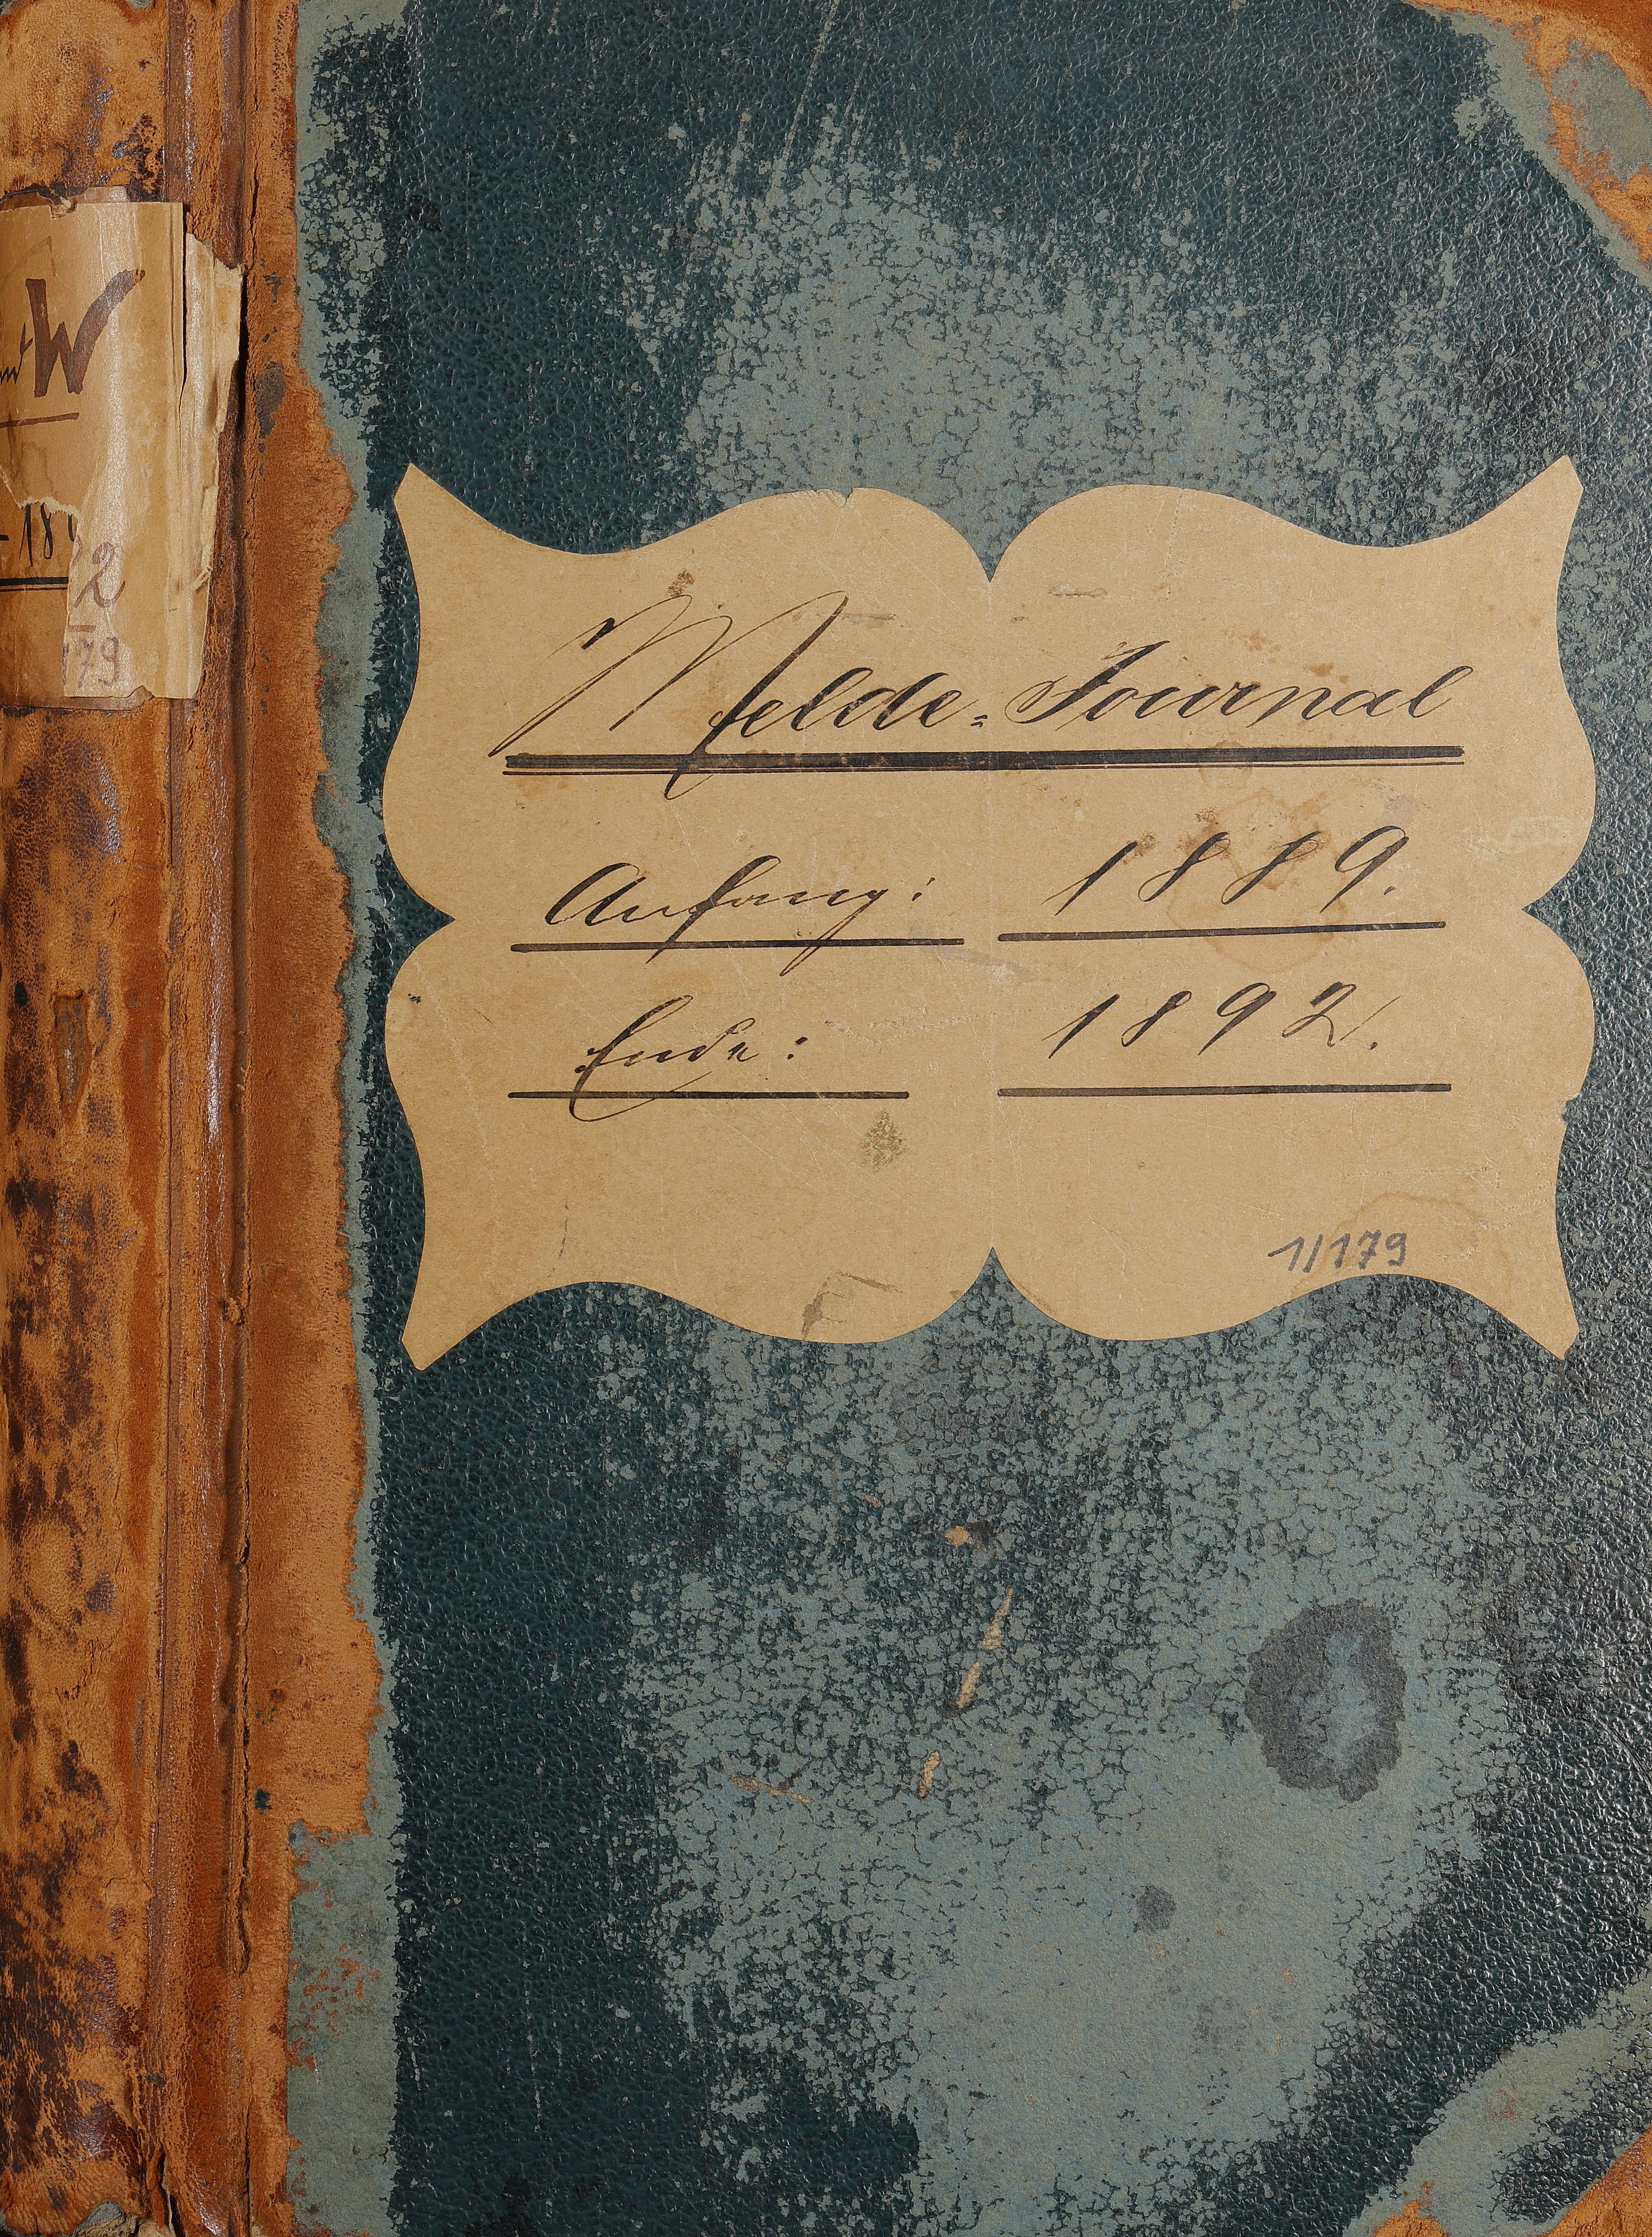 W
-18
2
179
Melde-Journal
Anfang: 1889.
Ende: 1892.
1/179